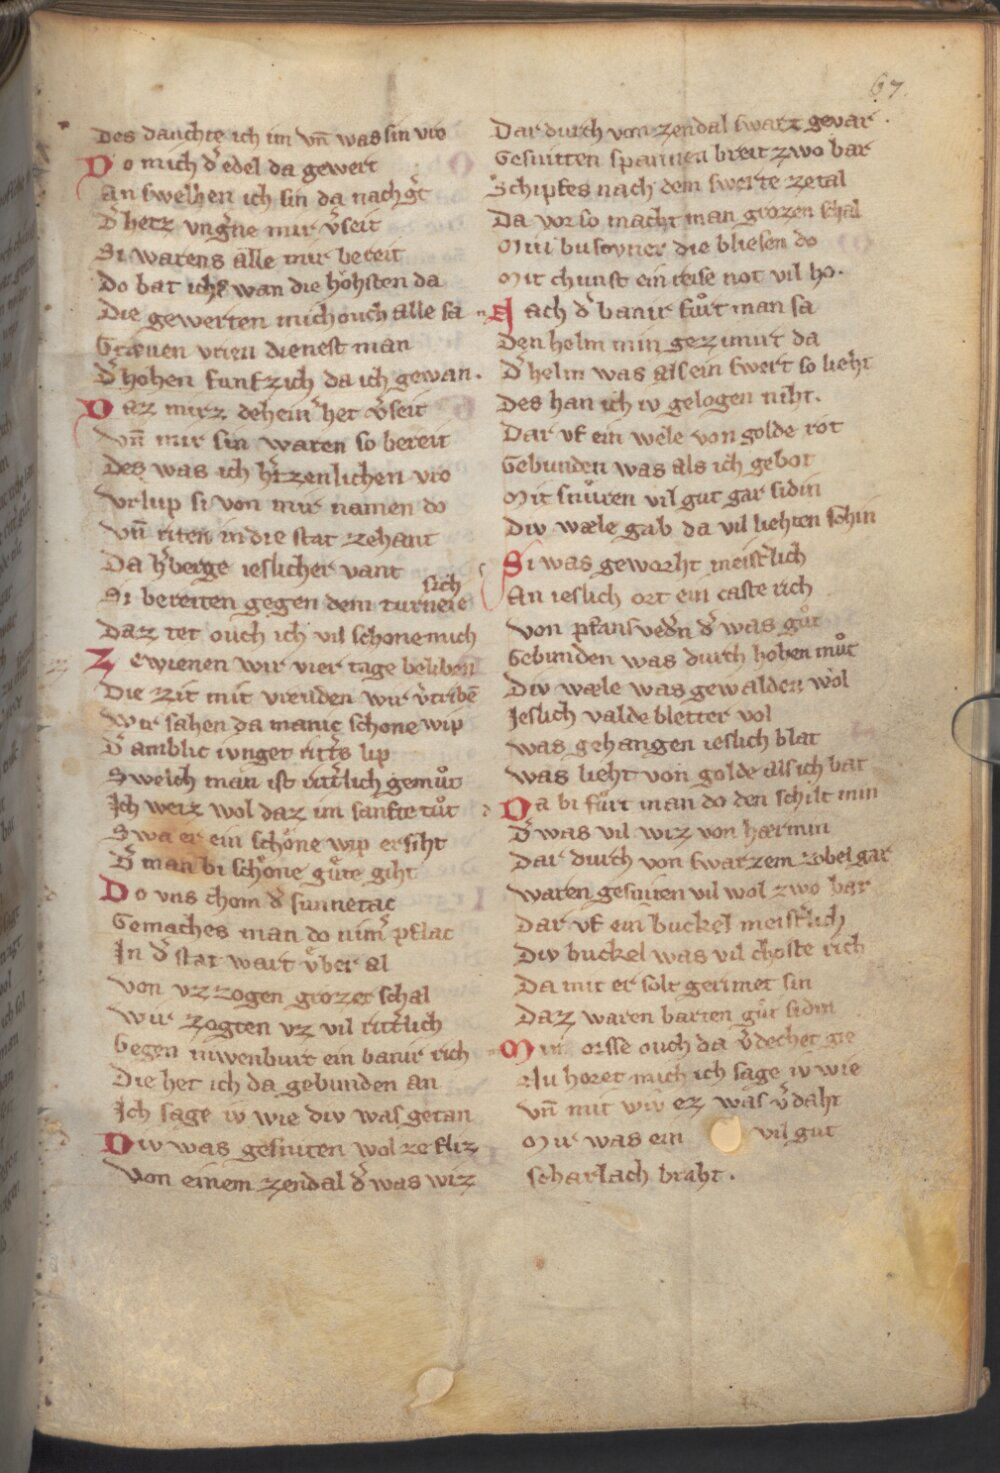 67.
Des dauchte ich im vn̄ was sin vro
Do mich d͛ edel da gewert
An swelhen ich sin da nach g͛t
D͛ hetz vng͛ne mir v͛seit
Si warens alle mir bereit
Do bat ichs wan die hohsten da
Die gewerten mich ouch alle sa
Græuen vrien dienest man
D͛ hohen funfzich da ich gewan.
Daz mirz dehein͛ het v͛seit
Vn̄ mir sin waren so bereit
Des was ich h͛tzenlichen vro
Vrlup si von mir namen do
Vn̄ riten in die stat zehant
Da h͛berge ieslicher vant
sich
Si bereiten gegen dem turneie
Daz tet ouch ich vil schone mich
Zewienen wir vier tage beliben
Die zit mit vreuden wir v͛tribē
Wir sahen da manic schone wip
D͛ amblic iunget ritt͛s lip
Swelch man ist ritt͛lich gemůt
Ich weiz wol daz im sanfte tůt
Swa er ein schone wip ersiht
D͛ man bi schone gůte giht
Do vns chom d͛ sunnetac
Gemaches man do nim͛ pflac
In d͛ stat wart vber al
Von vzzogen grozer schal
Wir zogten vz vil ritt͛lich
Gegen niwenburc ein banir rich
Die het ich da gebunden an
Ich sage iv wie div was getan
Div was gesniten wol ze fliz
Von einem zendal d͛ was wiz
Dar durch von zendal swarz gevar
Gesniten spannen breit zwo bar
Schipfes nach dem swerte zetal
Da vor so macht man grozen schal
Min busovner die bliesen do
Mit chunst ein reise not vil ho.
Nach d͛ banir fůrt man sa
Den helm min gezimirt da
D͛ helm was als ein swert so lieht
Des han ich iv gelogen niht.
Dar vf ein wele von golde rot
Gebunden was als ich gebot
Mit snůren vil gut gar sidin
Div wæle gab da vil liehten schin
Si was geworht meist͛lich
An ieslich ort ein caste rich
Von pfansved͛n d͛ was gůt
Gebunden was durch hohen můt
Div wæle was gewalden wol
Ieslich valde bletter vol
Was gehangen ieslich blat
Was lieht von golde als ich bat
Da bi fůrt man do den schilt min
D͛ was vil wiz von hærmin
Dar durch von swarzem zobel gar
Waren gesniten vil wol zwo bar
Dar vf ein buckel meist͛lich
Div buckel was vil choste rich
Da mit er solt gerimet sin
Daz waren barten gůt sidin
Min orsse ouch da v͛dechet gie
Nu horet mich ich sage iv wie
Vn̄ mit wiv ez was v͛daht
Mir was ein vil gut
scharlach braht.